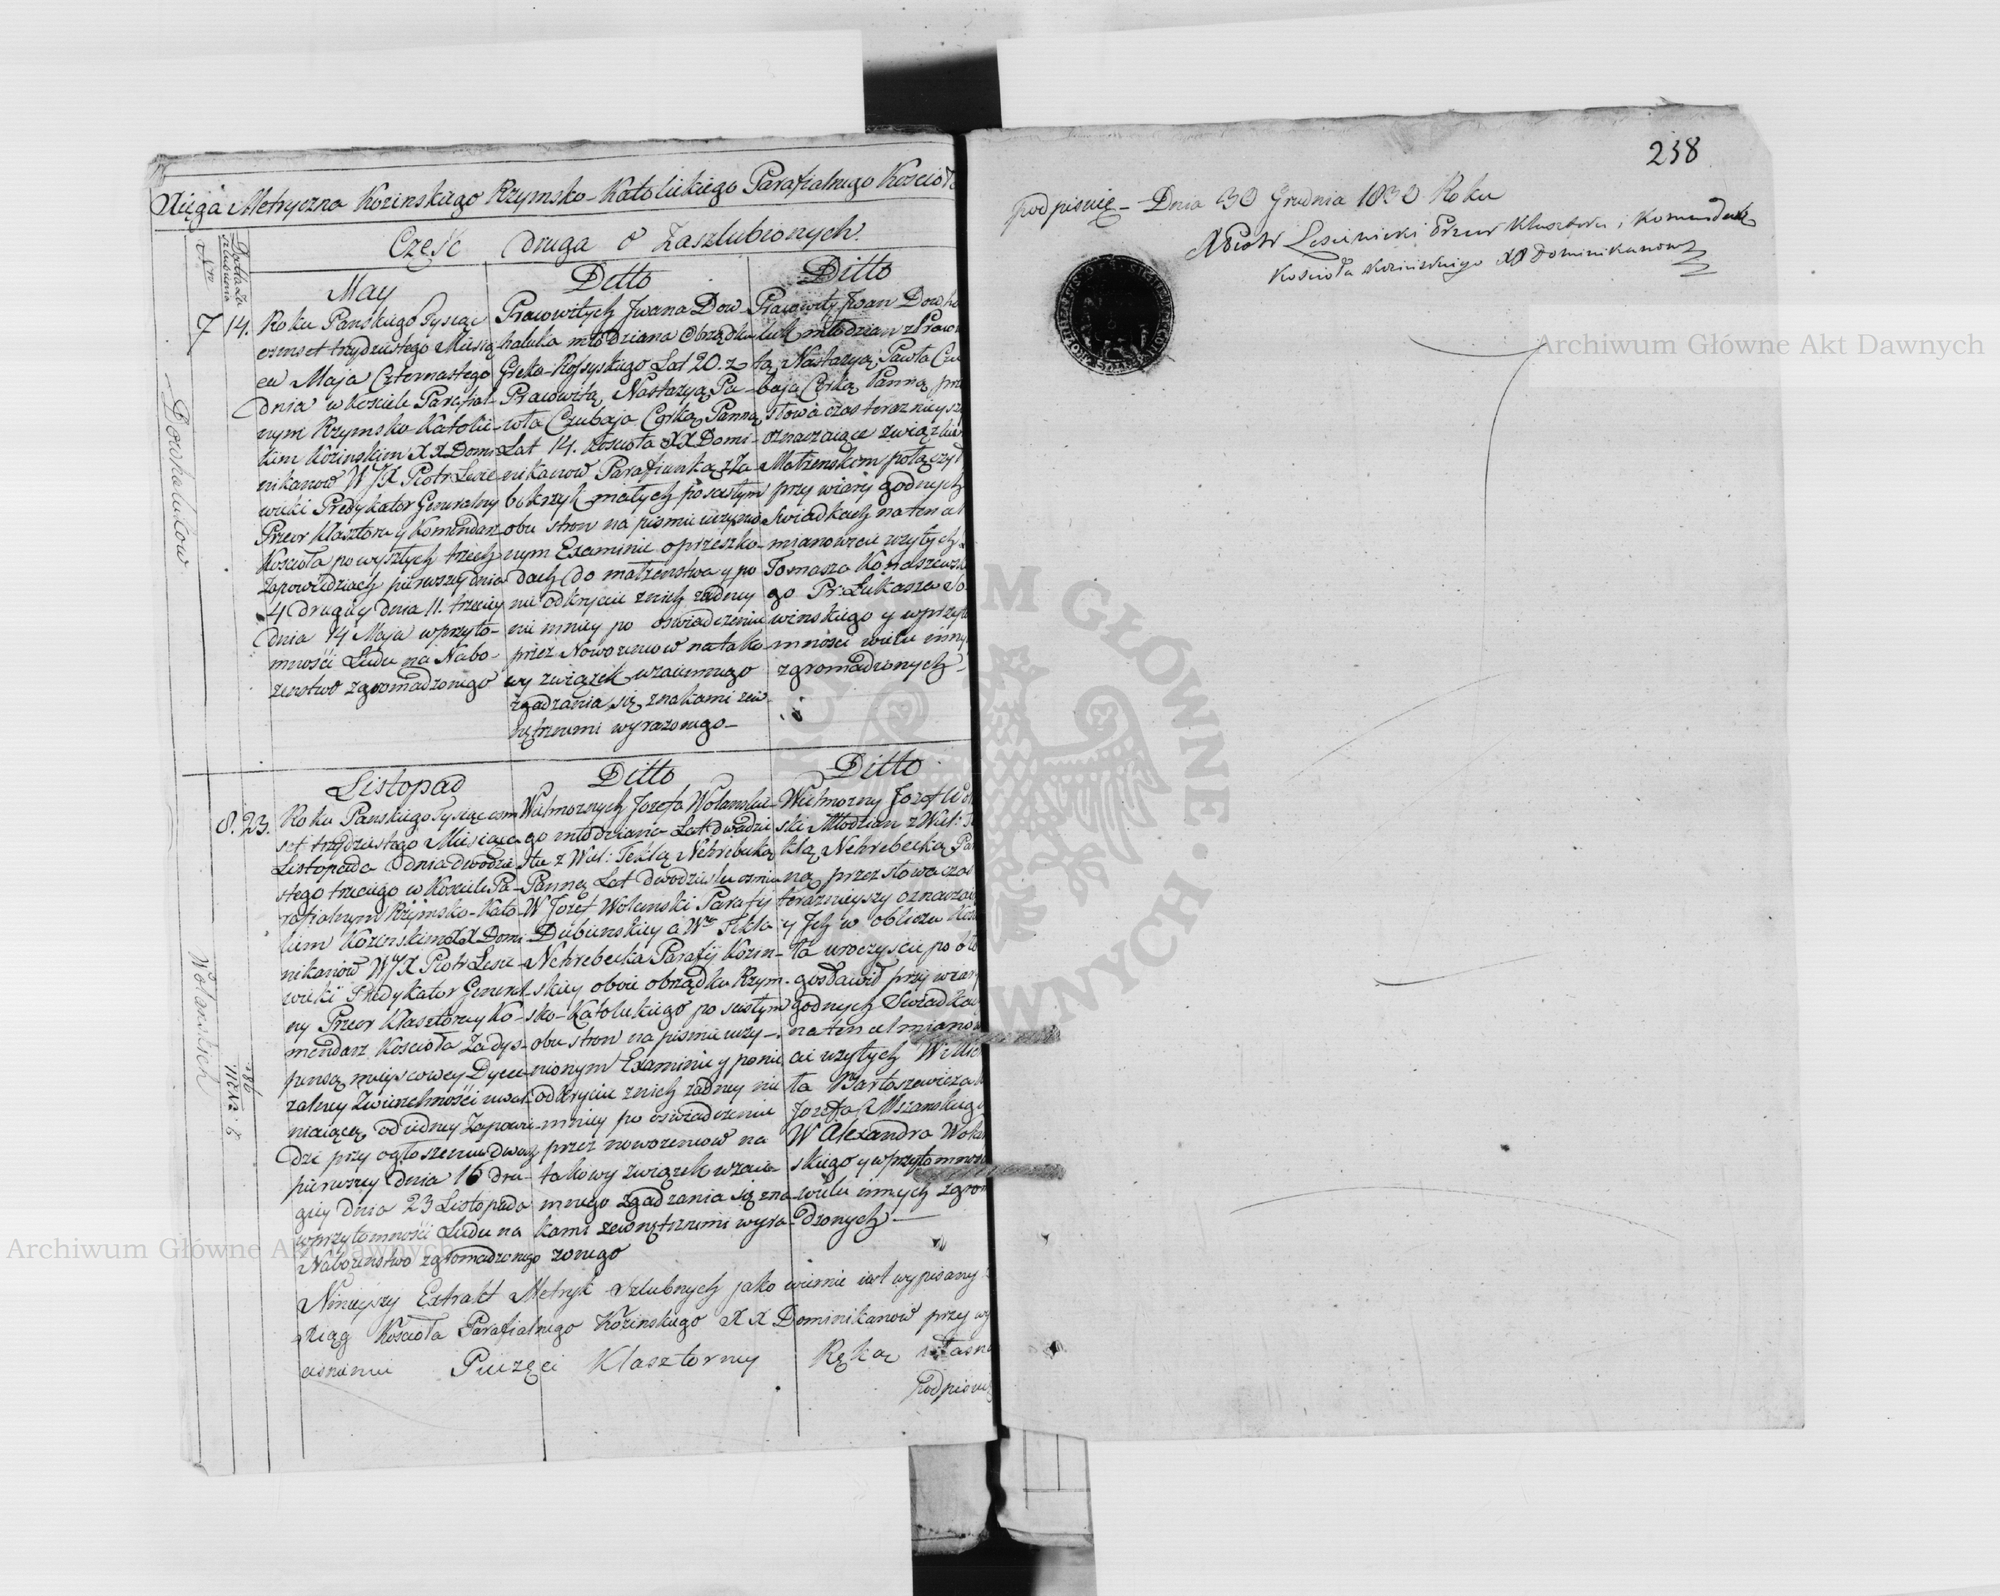 Xięga Metryczna Kozinskiego Rzymsko-Katolickiego Parafialnego Kościoł
Część druga o Zaszlubionych.
May
7 14. Roku Panskiego Tysiąc
osmset trzydziestego Miesią
ca Maja Czternastego
dnia w Kosciele Parafial-
nym Rzymsko-Katolic-
kim Kozinskim XX Domi
nikanow WJX Piotr Lesie
wicki Predykator Generalny
Przeor Klasztoru y Komendarz
Kościoła po wyszłych trzech
Zapowiedziach pierwszey dnia
4 drugiey dnia 11. trzeciey
dnia 14 Maja w przyto-
mności Ludu na Nabo-
zenstwo zgromadzonego
Ditto
Pracowitych Jwana Dow-
haluka młodziana Obrządku
Greko-Rossyskiego Lat 20. z
Pracowitą Nastazyą Pa-
wła Czubaja Corką Panną
Lat 14. Koscioła XX Domi-
nikanow Parafianką z Za
bokrzyk małych po scisłym
obu stron na pismie uczynio
nym Examinie o przeszko-
dach do małzenstwa y po
nie odkryciu z nich zadney
nie mniey po oswiadczeniu
przez Nowozencow na tako
wy związek wzaiemnego
zgadzania się znakami zew
nętrznemi wyrazonego-
Ditto
Pracowity Jwan Dowha
luk młodzian z Pracow
tą Nastazyą Pawła Czu
baja Corką Panną prz
słowa czas teraznieysz
oznaczaiące związkie
Małzenskim połączył
przy wiary godnych
Swiadkach na ten cel
mianowicie uzytych
Tomasza Konaszewsk
go Pr: Łukasza So
winskiego y w przyto
mności wielu innych
zgromadzonych
Dowhaluков
Listopad
8. 23. Roku Panskiego Tysiąc osm
set trzydziestego Miesiąca
Listopada dnia dwudzie
stego trzeciego w Kosciele Pa-
rafialnym Rzymsko-Kato-
lickim Kozinskim XX Domi
nikanow WJX Piotr Lesie-
wicki Predykator General-
ny Przeor Klasztoru y Ko-
mendarz Kościoła Za dys-
pensą mieyscowey Dyece-
zalney Zwierzchności uwol
niaiącą od iedney Zapowie-
dzi przy ogłoszeniu dwuch
pierwszey dnia 16 dru-
giey dnia 23 Listopada
w przytomności Ludu na
Nabozenstwo zgromadzonego
Ditto
Wielmoznych Jozefa Wolanskie-
go młodziana Lat dwadzie
scia z Wiel: Teklą Nehrebecką
Panną Lat dwadziescia osmiu
W Jozef Wolanski Parafij
Dubienskiey a Wa Tekla
Nehrebecka Parafij Kozin-
skiey oboie obrządku Rzym-
sko-Katolickiego po scisłym
obu stron na pismie uczy-
nionym Examinie y po nie
odkryciu z nich zadney nie
mniey po oswiadczeniu
przez nowozencow na
takowy związek wzaie-
mnego zgadzania się zna-
kami zewnętrznemi wyra-
zonego
Ditto
Wielmozny Jozef Wola
ski Młodzian z Wiel: Te
klą Nehrebecką Pan
ną przez słowa czas
teraznieyszy oznaczaią
y Jch w obliczu Kosc
ła uroczyscie po bło
gosławił przy wiary
godnych Swiadkach
na ten cel mianowi
cie uzytych W Mich
ła Bartoszewicza
Jozefa Mszanskiego
W Alexandra Wolan
skiego y w przytomnosci
wielu innych zgrom
dzonych
Wolanskich
Ninieyszy Extrakt Metryk Szlubnych jako wiernie iest wypisany z
Xiąg Kościoła Parafialnego Kozinskiego XX Dominikanow przy wy
cisnieniu Pieczęci Klasztorney Ręką własną
podpisuię
238
podpisuię - Dnia 30 Grudnia 1830 Roku
X Piotr Lesiewicki Przeor Klasztoru i Komendarz
Kościoła Kozińskiego XX Dominikanow
Archiwum Główne Akt Dawnych
Archiwum Główne Akt Dawnych